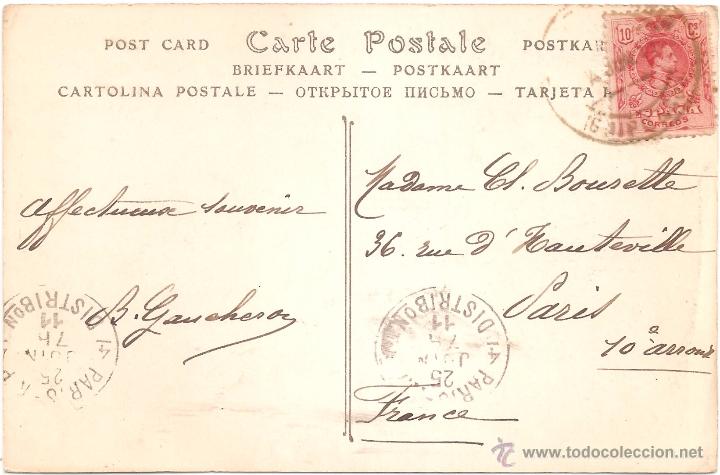 POST CARD Carte Postale POSTKAR
BRIEFKAART — POSTKAART
CARTOLINA POSTALE — ОТКРЫТОЕ ПИСЬМО — TARJETA
10 Cs
CORREOS
Affectueux souvenir
B. Gaucheron
Madame Ch. Boursette
36. rue d'Hauteville
Paris
10è arronx
France
PARIS
DISTRIBON
25
JUIN
7H
11
PAR
DISTRIBON
25
7H
11
www.todocoleccion.net